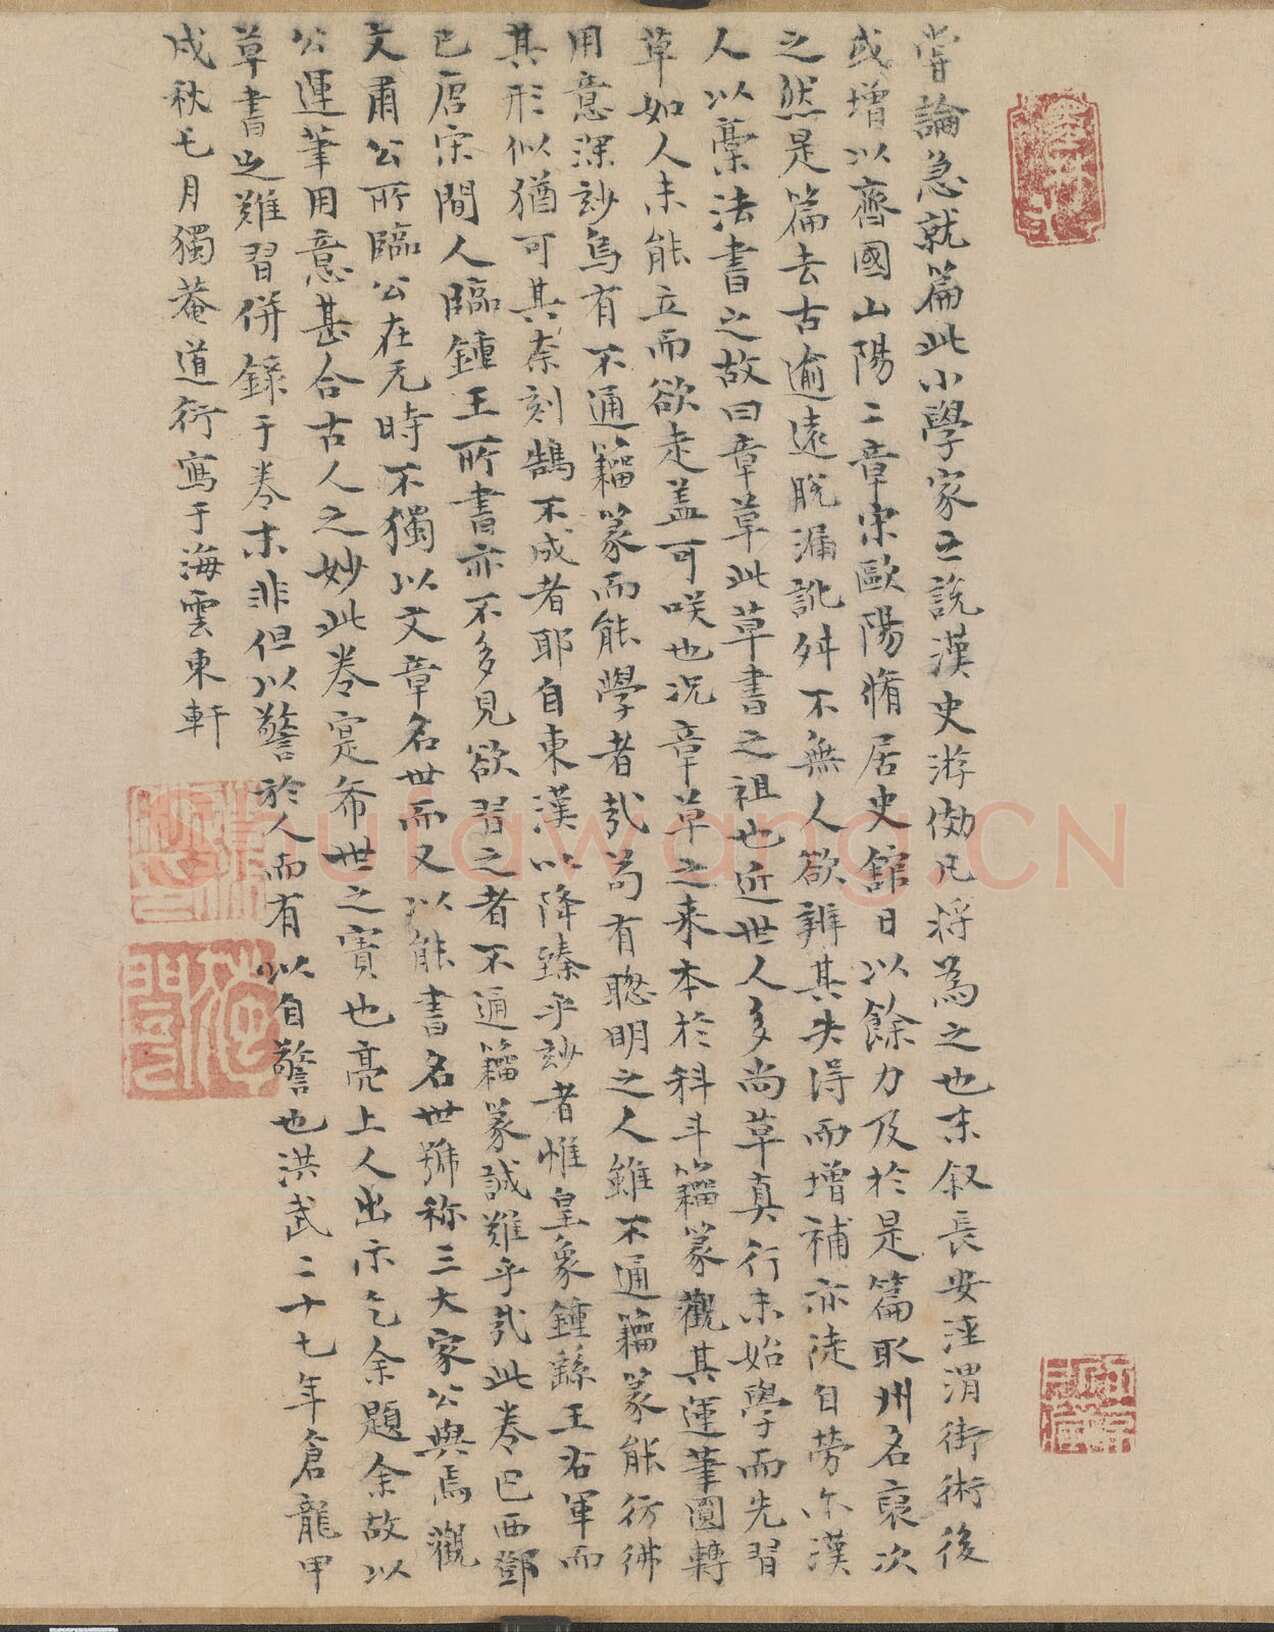 嘗論急就篇此小學家之說漢史游倣凡將為之也末叙長安涇渭街術後
或增以齊國山陽二章宋歐陽脩居史舘日以餘力及於是篇取州名裒次
之然是篇去古逾遠脫漏訛舛不無人欲辨其失得而增補亦徒自勞尔漢
人以藁法書之故曰章草此草書之祖也近世人多尚草真行未始學而先習
草如人未能立而欲走盖可咲也况章草之来本於科斗籀篆觀其運筆圓轉
用意深玅烏有不通籀篆而能學者㢤苟有聦明之人雖不通籀篆能彷彿
其形似猶可其柰刻鵠不成者耶自東漢以降臻乎玅者惟皇象鍾繇王右軍而
已唐宋間人臨鍾王所書亦不多見欲習之者不通籀篆誠難乎㢤此卷巴西鄧
文肅公所臨公在元時不獨以文章名世而又以能書名世號称三大家公與焉觀
公運筆用意甚合古人之妙此卷寔希世之寶也亮上人出示乞余題余故以
草書之難習併錄于卷末非但以警於人而有以自警也洪武二十七年倉龍甲
戌秋七月獨菴道衍寫于海雲東軒
shufawang.CN